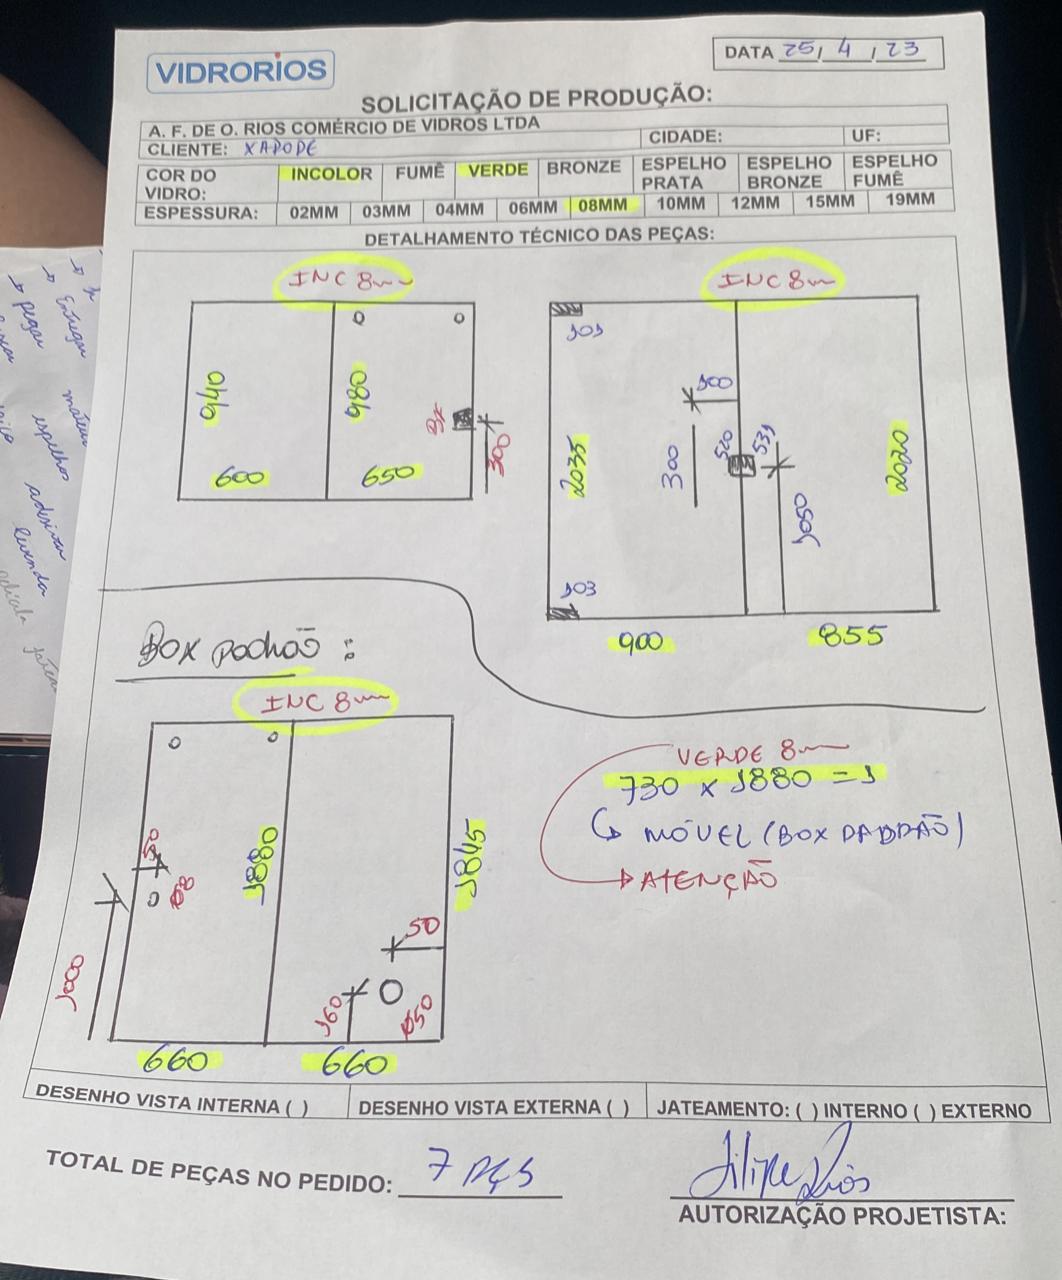 VIDRORIOS
DATA 25/ 4 / 23
SOLICITAÇÃO DE PRODUÇÃO:
A. F. DE O. RIOS COMÉRCIO DE VIDROS LTDA
CLIENTE: XAPOPE
CIDADE:
UF:
COR DO VIDRO:
INCOLOR
FUMÊ
VERDE
BRONZE
ESPELHO PRATA
ESPELHO BRONZE
ESPELHO FUMÊ
ESPESSURA:
02MM
03MM
04MM
06MM
08MM
10MM
12MM
15MM
19MM
DETALHAMENTO TÉCNICO DAS PEÇAS:
INC 8mm
940
980
600
650
300
INC 8mm
101
100
2035
300
520
531
1050
2020
103
900
855
Box padrão:
INC 8mm
50
Ø8
1880
1845
1000
50
160
Ø50
660
660
VERDE 8mm
730 x 1880 = 1
MÓVEL (BOX PADRÃO)
ATENÇÃO
DESENHO VISTA INTERNA ( )
DESENHO VISTA EXTERNA ( )
JATEAMENTO: ( ) INTERNO ( ) EXTERNO
TOTAL DE PEÇAS NO PEDIDO: 7 PÇS
Filipe Rios
AUTORIZAÇÃO PROJETISTA:
Entregar
pegar
espelho